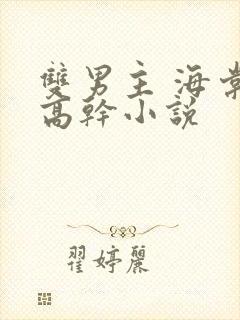 雙男主 海棠
高幹小說
翟婷麗